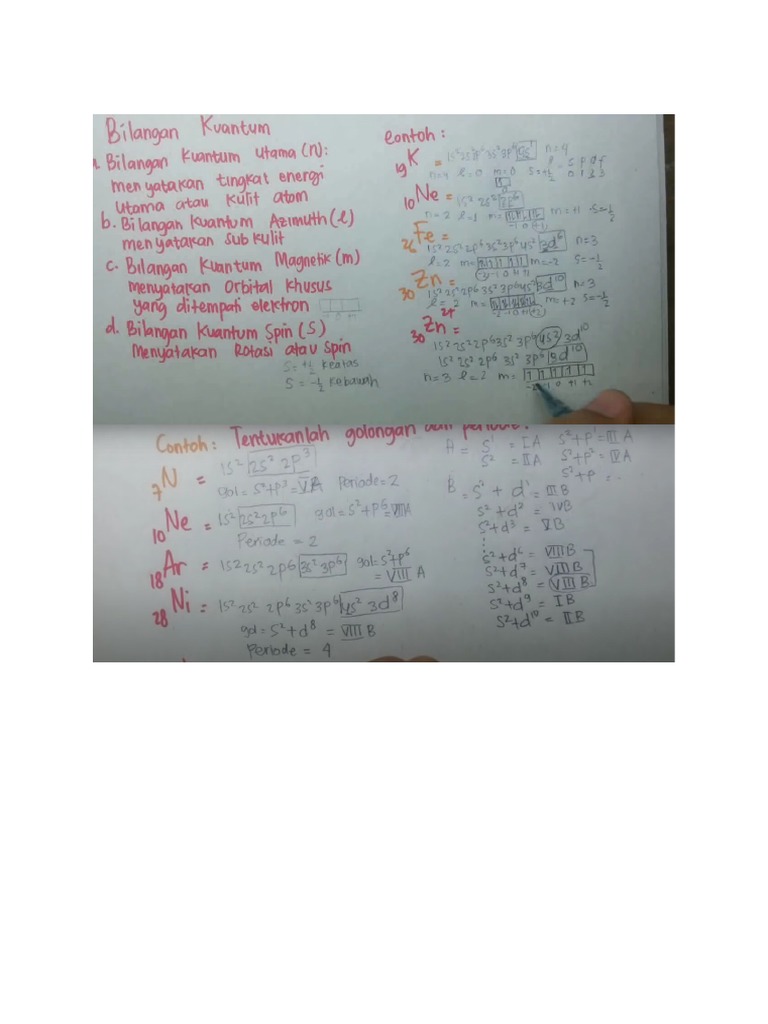 Bilangan Kuantum
a. Bilangan Kuantum Utama (n):
menyatakan tingkat energi
utama atau kulit atom
b. Bilangan Kuantum Azimuth (l)
menyatakan sub kulit
c. Bilangan Kuantum Magnetik (m)
menyatakan orbital khusus
yang ditempati elektron
-1 0 +1
d. Bilangan Kuantum Spin (s)
Menyatakan Rotasi atau spin
s = +1/2 keatas
s = -1/2 kebawah
Contoh:
19K = 1s² 2s² 2p⁶ 3s² 3p⁶ 4s¹ n=4
n=4 l=0 m=0 s=+1/2
l = s p d f
0 1 2 3
10Ne = 1s² 2s² 2p⁶
n=2 l=1 m= m=+1 s=-1/2
-1 0 +1
26Fe =
1s² 2s² 2p⁶ 3s² 3p⁶ 4s² 3d⁶ n=3
l=2 m= m=-2 s=-1/2
-2 -1 0 +1 +2
30Zn =
1s² 2s² 2p⁶ 3s² 3p⁶ 4s² 3d¹⁰ n=3
l=2 m= m=+2 s=-1/2
-2 -1 0 +1 +2
30Zn²⁺ =
1s² 2s² 2p⁶ 3s² 3p⁶ 4s² 3d¹⁰
1s² 2s² 2p⁶ 3s² 3p⁶ 3d¹⁰
n=3 l=2 m=
-2 -1 0 +1 +2
Contoh: Tentukanlah golongan dan periode!
7N = 1s² 2s² 2p³
gol = s²+p³ = VA Periode = 2
10Ne = 1s² 2s² 2p⁶ gol = s²+p⁶ = VIIIA
Periode = 2
18Ar = 1s² 2s² 2p⁶ 3s² 3p⁶ gol = s²+p⁶
= VIII A
28Ni = 1s² 2s² 2p⁶ 3s² 3p⁶ 4s² 3d⁸
gol = s²+d⁸ = VIII B
Periode = 4
A = s¹ = IA s²+p¹ = III A
s² = IIA s²+p² = IV A
s²+p =
B = s² + d¹ = III B
s²+d² = IVB
s²+d³ = VB
s²+d⁶ = VIII B
s²+d⁷ = VIII B
s²+d⁸ = VIII B
s²+d⁹ = I B
s²+d¹⁰ = II B